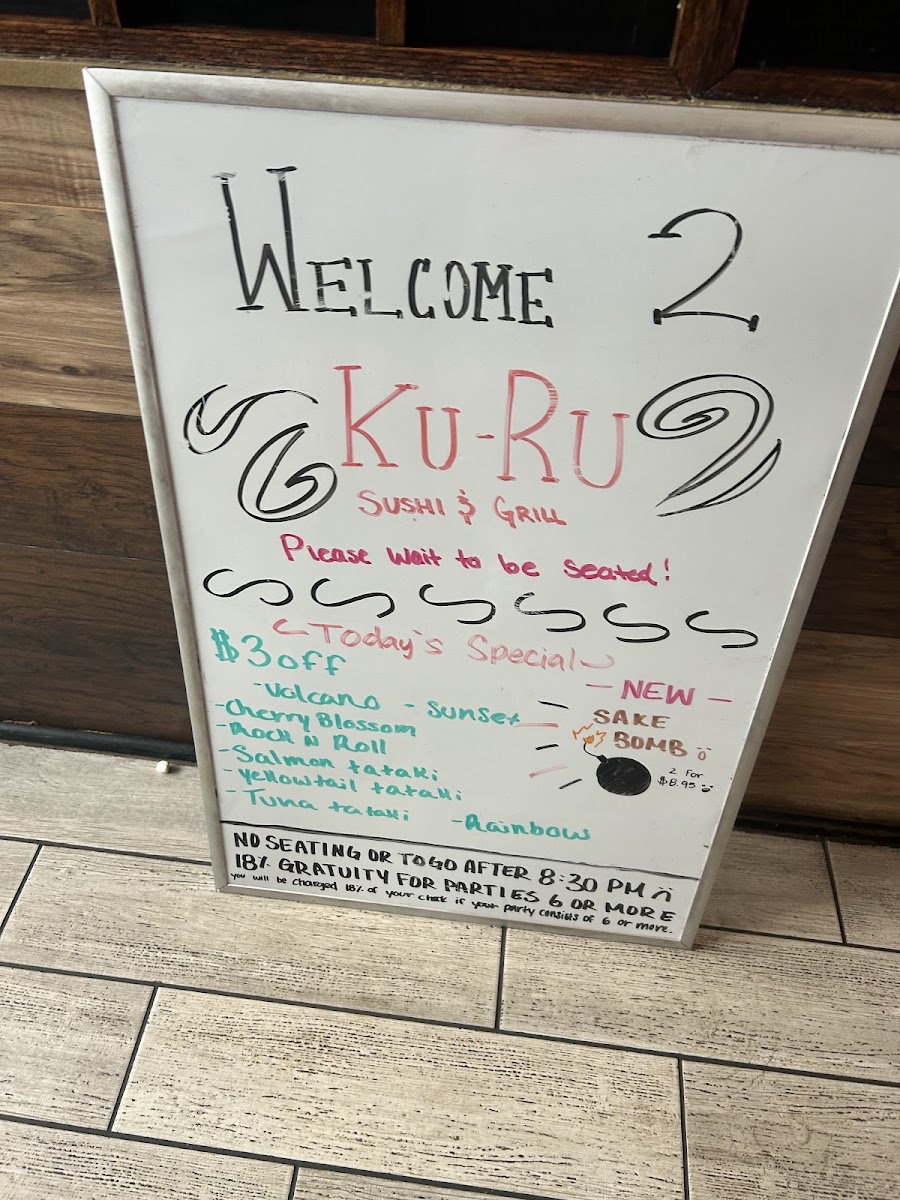 WELCOME 2
KU-RU
SUSHI & GRILL
Please wait to be seated!
Today's Special
$3 off
- Volcano - Sunset
- Cherry Blossom
- Rock N Roll
- Salmon tataki
- Yellowtail tataki
- Tuna tataki - Rainbow
- NEW -
SAKE
BOMB
2 For
$8.95
NO SEATING OR TOGO AFTER 8:30 PM
18% GRATUITY FOR PARTIES 6 OR MORE
you will be charged 18% of your check if your party consists of 6 or more.